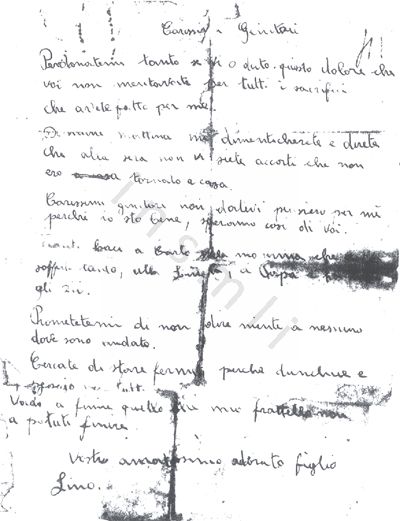 Carissimi Genitori
Perdonatemi tanto se vi o dato questo dolore che
voi non meritavate per tutti i sacrifici
che avete fatto per me.
mattina mi dimenticherete e direte
che alla sera non vi siete accorti che non
ero tornato a casa.
Carissimi genitori non datevi pensiero per me
perché io sto bene, speriamo così di voi.
Baci a
soffrire tanto, alla a
gli zii.
Prometetemi di non dire niente a nessuno
dove sono andato.
Cercate di stare fermi perché dunchue e
tutti.
Vado a finire quello che mio frattello non
a potuti finire
Vostro amatissimo adorato figlio
Lino.